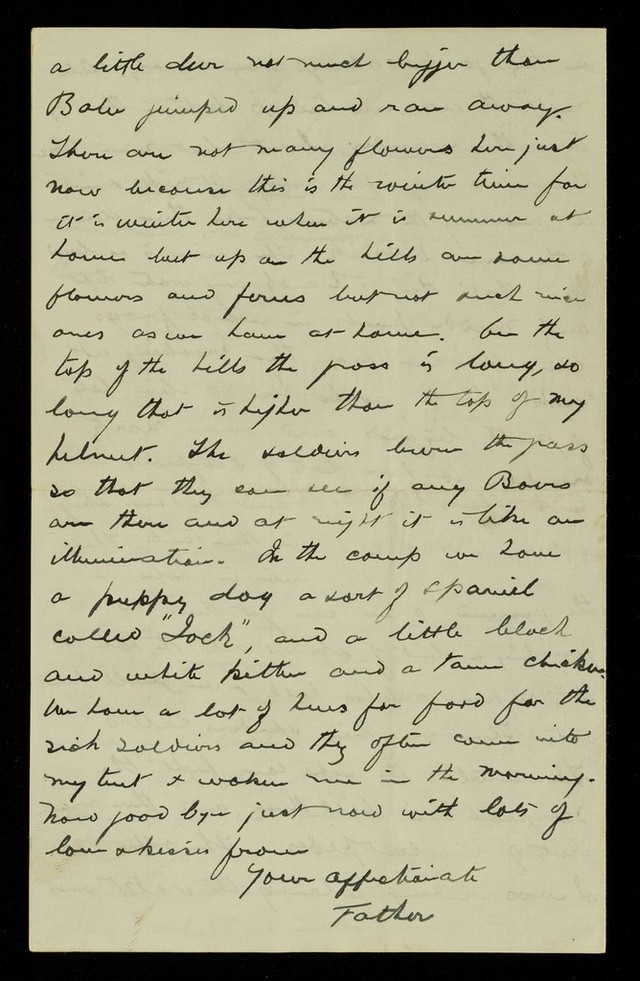 a little deer not much bigger than
Baler jumped up and ran away.
There are not many flowers here just
now because this is the winter time for
it is winter here when it is summer at
home but up on the hills are some
flowers and ferns but not such nice
ones as we have at home. On the
top of the hills the grass is long, so
long that is higher than the top of my
helmet. The soldiers burn the grass
so that they can see if any Boers
are there and at night it is like an
illumination. In the camp we have
a puppy dog a sort of spaniel
called "Jock", and a little black
and white kitten and a tame chicken.
We have a lot of hens for food for the
sick soldiers and they often come into
my tent & waken me in the morning.
Now good bye just now with lots of
love & kisses from
Your affectionate
Father